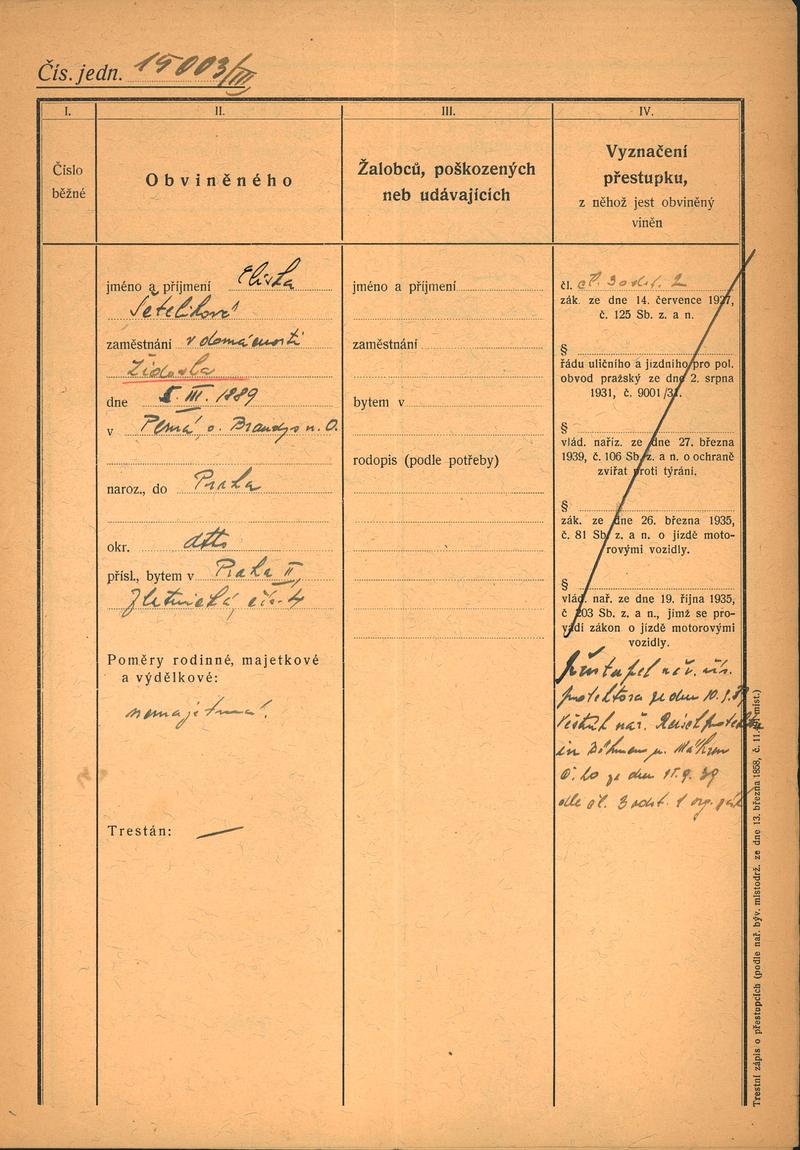 Čís. jedn. 15003/III
I.
II.
III.
IV.
Číslo
běžné
Obviněného
Žalobců, poškozených
neb udávajících
Vyznačení
přestupku,
z něhož jest obviněný
viněn
jméno a příjmení Eliška
zaměstnání v domácnosti
Židovka
dne 5. III. 1889
v o. Brandýs n. O.
naroz., do Praha
okr. dtto
přísl., bytem v Praha II,
čís. 4
Poměry rodinné, majetkové
a výdělkové:
nemajetná.
Trestán: —
jméno a příjmení
zaměstnání
bytem v
rodopis (podle potřeby)
čl. čl. 3 odst. 2
zák. ze dne 14. července 1927,
č. 125 Sb. z. a n.
§
řádu uličního a jízdního pro pol.
obvod pražský ze dne 2. srpna
1931, č. 9001/31.
§
vlád. naříz. ze dne 27. března
1939, č. 106 Sb. z. a n. o ochraně
zvířat proti týrání.
§
zák. ze dne 26. března 1935,
č. 81 Sb. z. a n. o jízdě moto-
rovými vozidly.
§
vlád. nař. ze dne 19. října 1935,
č 203 Sb. z. a n., jímž se pro-
vádí zákon o jízdě motorovými
vozidly.
Přestupek nař. říš.
protektora ze dne
Věstník nař. Reichsprotektor
in Böhmen u. Mähren
ze dne 15.9.39
dle čl. 3 odst. 1 org. zák.
Trestní zápis o přestupcích (podle nař. býv. místodrž. ze dne 13. března 1858, č. 11.421 míst.)